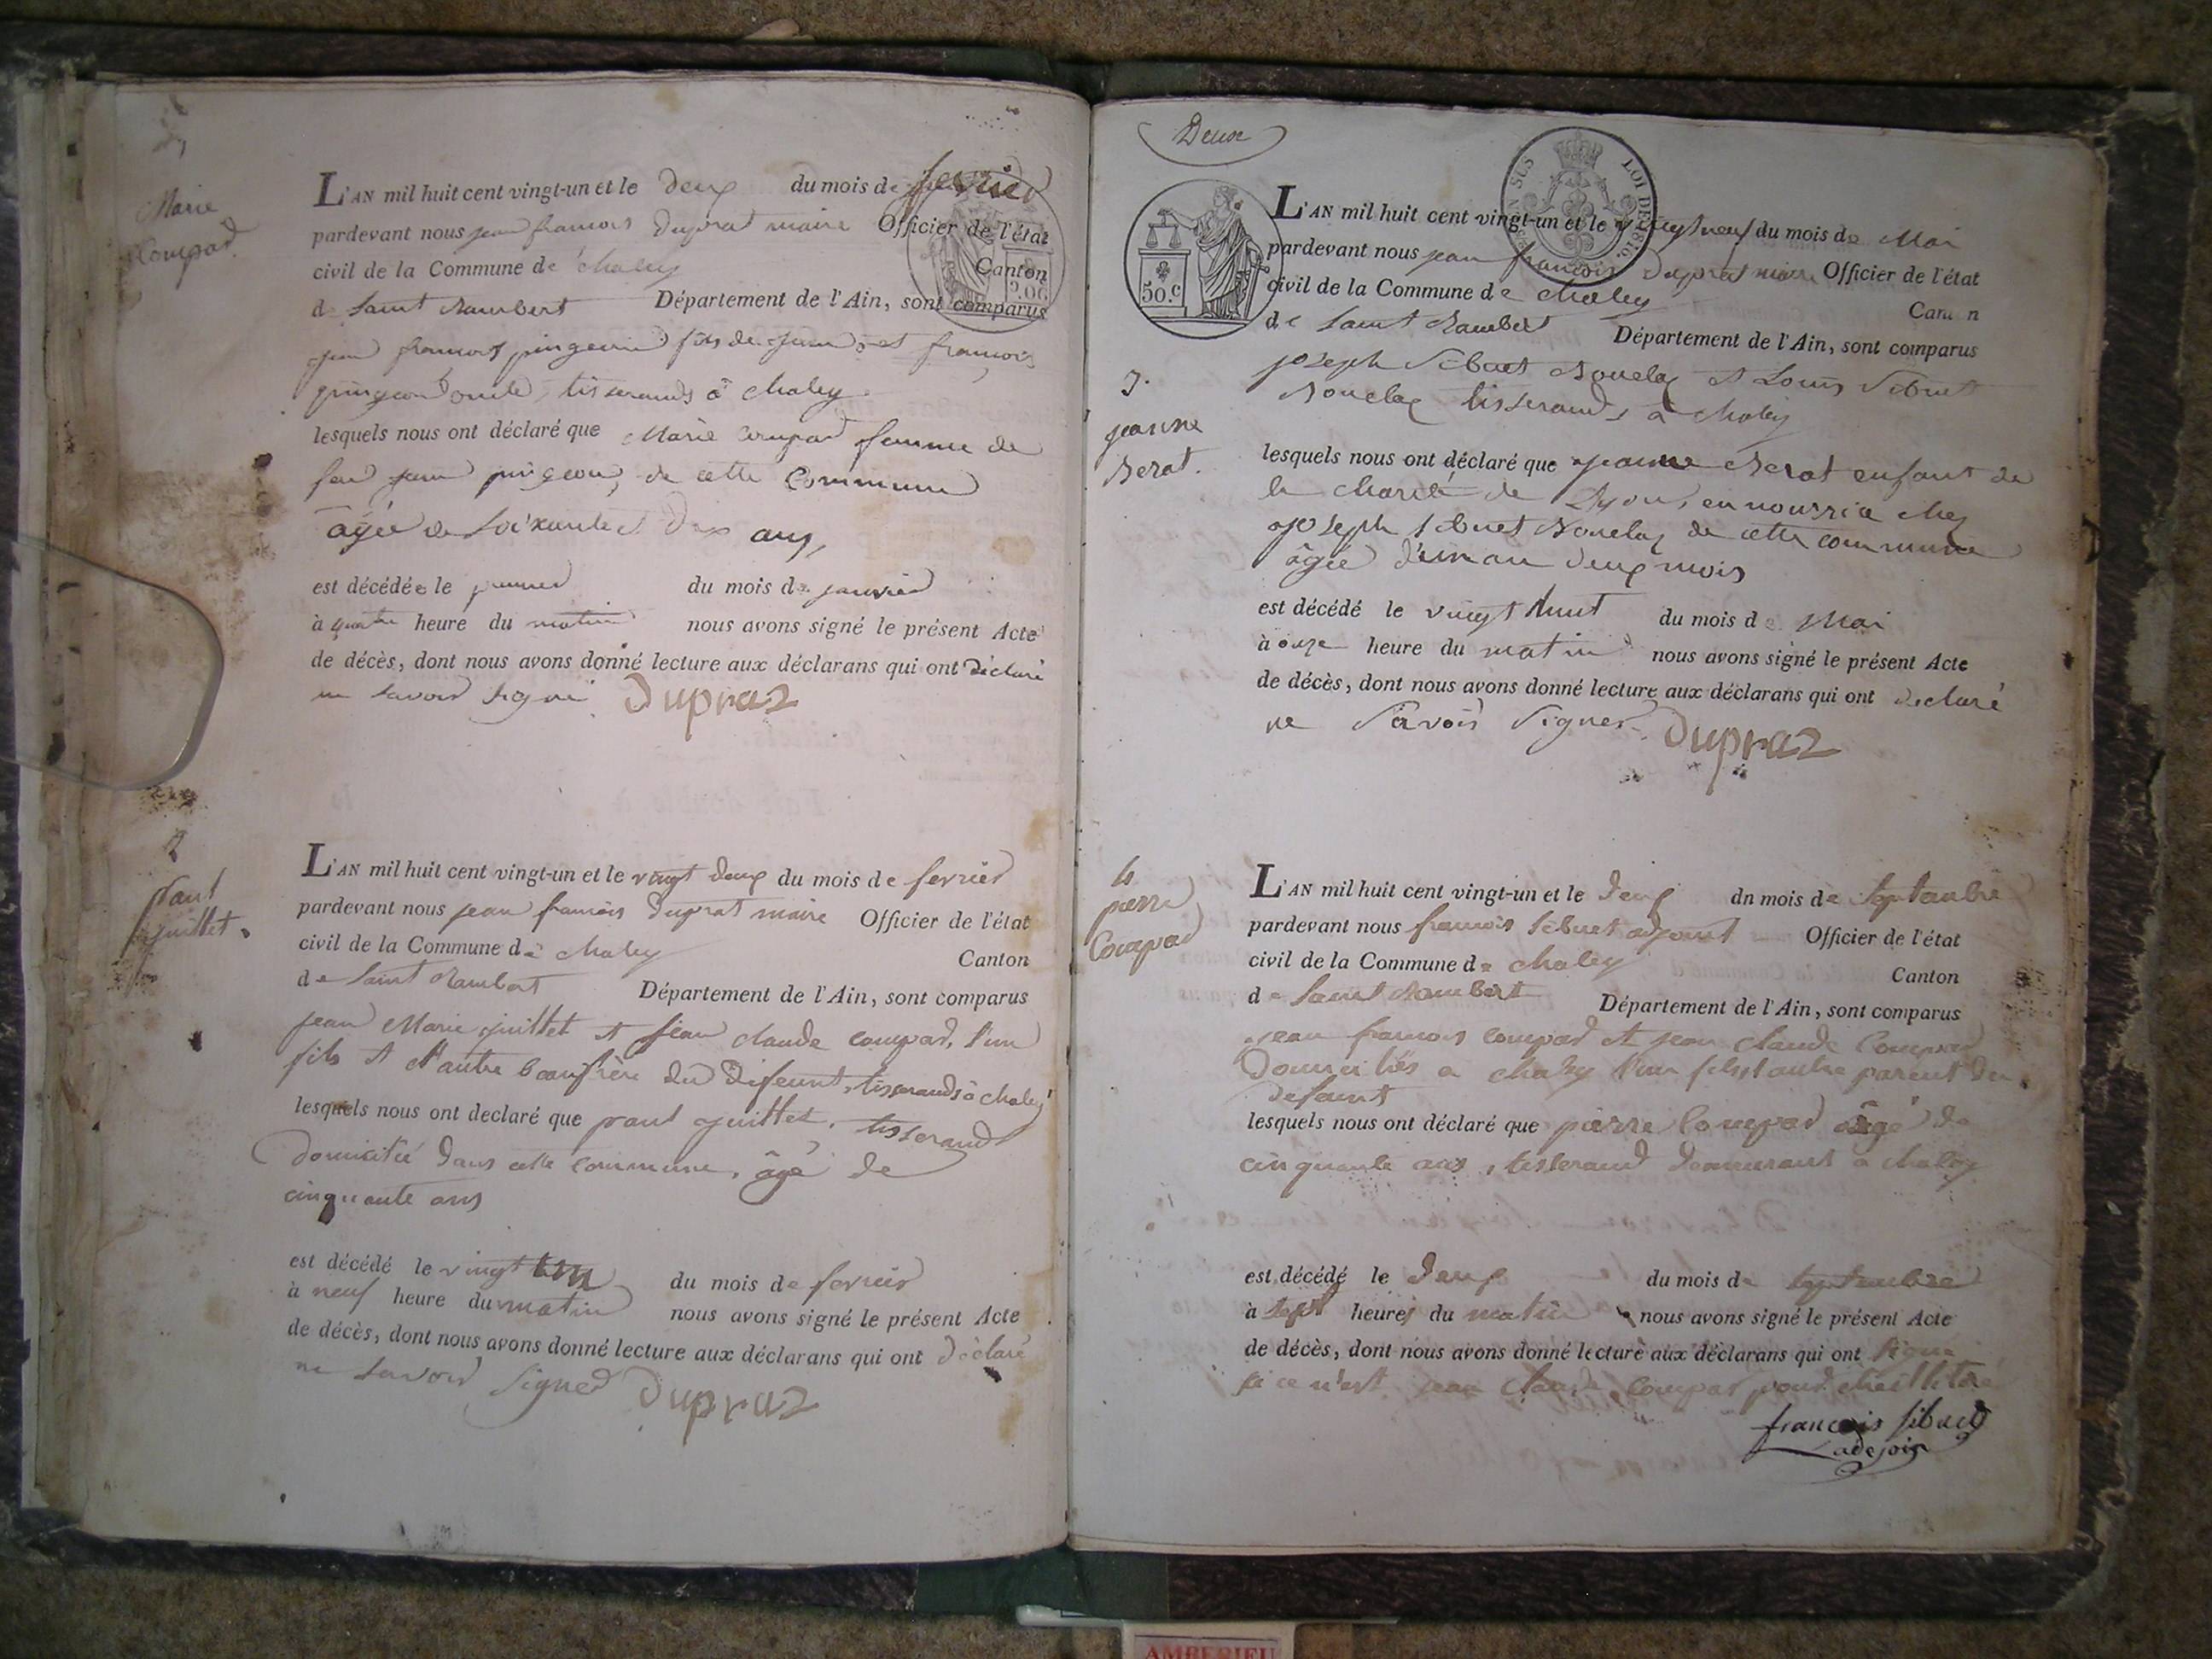 Marie
Compad
L'AN mil huit cent vingt-un et le deux du mois de fevrier
pardevant nous jean francois Duprat maire Officier de l'état
civil de la Commune de Chaley Canton
de Saint Rambert Département de l'Ain, sont comparus
jean francois pingeon fils de jean et francois
pingeon oncle, tisserands à Chaley
lesquels nous ont déclaré que Marie Compad femme de
feu jean pingeon, de cette Commune
âgée de soixante dix ans,
est décédée le premier du mois de janvier
à quatre heure du matin nous avons signé le présent Acte
de décès, dont nous avons donné lecture aux déclarans qui ont déclaré
ne savoir signé Dupraz
2
paul
juillet.
L'AN mil huit cent vingt-un et le vingt deux du mois de fevrier
pardevant nous jean francois Duprat maire Officier de l'état
civil de la Commune de Chaley Canton
de Saint Rambert Département de l'Ain, sont comparus
jean Marie juillet et jean claude compad, l'un
fils et l'autre beaufrère du difeunt, tisserands à chaley
lesquels nous ont declaré que paul juillet, tisserand
domicilié dans cette commune, âgé de
cinquante ans
est décédé le vingt un du mois de fevrier
à neuf heure du matin nous avons signé le présent Acte
de décès, dont nous avons donné lecture aux déclarans qui ont déclaré
ne savoir signer Dupraz
Deux
SUS LOI DE 1816.
50.c
L'AN mil huit cent vingt-un et le vingt neuf du mois de Mai
pardevant nous jean francois Duprat maire Officier de l'état
civil de la Commune de Chaley Can n
de Saint Rambert Département de l'Ain, sont comparus
3.
jeanne
Serat.
joseph Sibuet et Louis Sibuet
tisserands à Chaley
lesquels nous ont déclaré que jeanne Serat enfant de
la charité de Lyon, en nourrice chez
joseph Sibuet de cette commune
âgée d'un an deux mois
est décédé le vingt huit du mois de Mai
à onze heure du matin nous avons signé le présent Acte
de décès, dont nous avons donné lecture aux déclarans qui ont déclaré
ne savoir signer Dupraz
4
pierre
Compad
L'AN mil huit cent vingt-un et le deux dn mois de septembre
pardevant nous francois Sibuet adjoint Officier de l'état
civil de la Commune de Chaley Canton
de Saint Rambert Département de l'Ain, sont comparus
jean francois compad et jean claude Compad
Domiciliés a chaley l'un fils l'autre parent du
defaint
lesquels nous ont déclaré que pierre Compad âgé de
cinquante ans, tisserand demeurant a chaley
est décédé le deux du mois de septembre
à sept heures du matin nous avons signé le présent Acte
de décès, dont nous avons donné lecture aux déclarans qui ont signé
si ce n'est jean claude compad pour
francois sibuet
adejoin
AMBERIEU